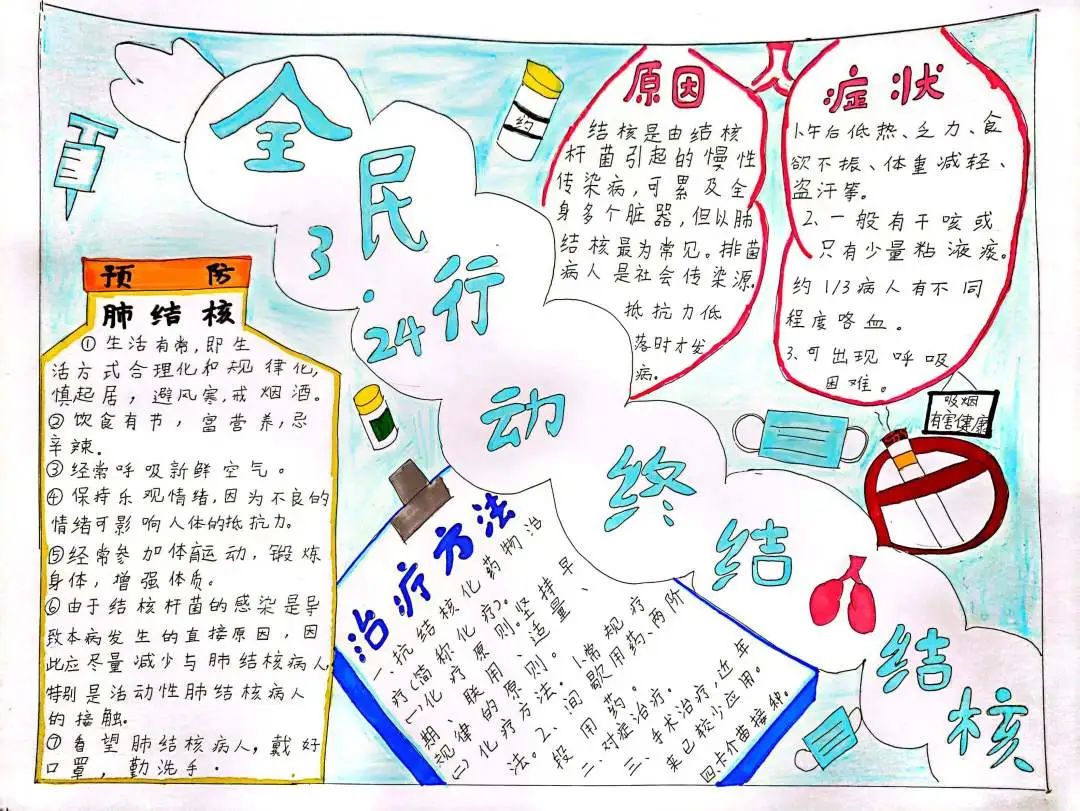 全民行动终结结核
3.24
约
原因
结核是由结核
杆菌引起的慢性
传染病,可累及全
身多个脏器,但以肺
结核最为常见。排菌
病人是社会传染源.
抵抗力低
落时才发
病。
症状
1.午后低热、乏力、食
欲不振、体重减轻、
盗汗等。
2.一般有干咳或
只有少量粘液痰。
约1/3病人有不同
程度咯血。
3.可出现呼吸
困难。
吸烟
有害健康
预防
肺结核
①生活有常,即生
活方式合理化和规律化,
慎起居,避风寒,戒烟酒。
②饮食有节,富营养,忌
辛辣。
③经常呼吸新鲜空气。
④保持乐观情绪,因为不良的
情绪可影响人体的抵抗力。
⑤经常参加体育运动,锻炼
身体,增强体质。
⑥由于结核杆菌的感染是导
致本病发生的直接原因,因
此应尽量减少与肺结核病人,
特别是活动性肺结核病人
的接触。
⑦看望肺结核病人,戴好
口罩,勤洗手.
治疗方法
一、抗结核化药物治
疗(简称化疗)。
(一)化疗原则坚持早
期、联用、适量、
规律的原则。
(二)化疗方法。1.常规疗
法。2、间歇用药、两阶
段用药。
二、对症治疗。
三、手术治疗,近年
来已较少应用。
四.卡介苗接种。